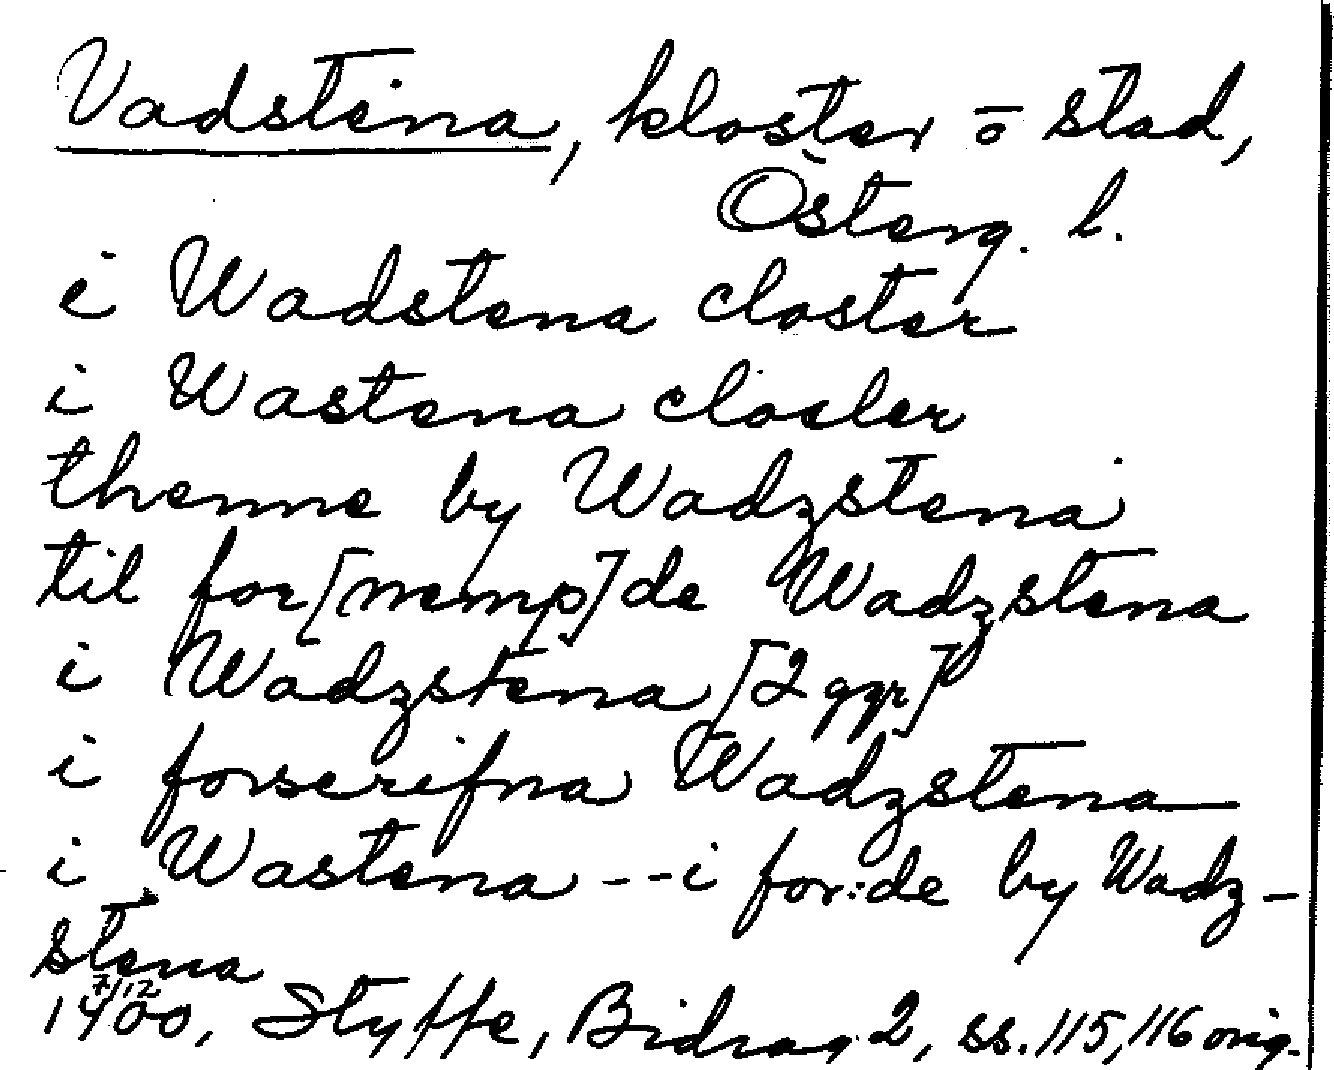 Vadstena, kloster o stad,
Österg. l.
i Wadstena closter
i Wastena closter
thenne by Wadzstena
til for[nemp]de Wadzstena
i Wadzstena [2 ggr]
i forscrifna Wadzstena
i Wastena -- i for:de by Wadz-
stena
1400 7/12, Styffe, Bidrag 2, ss. 115, 116 orig.